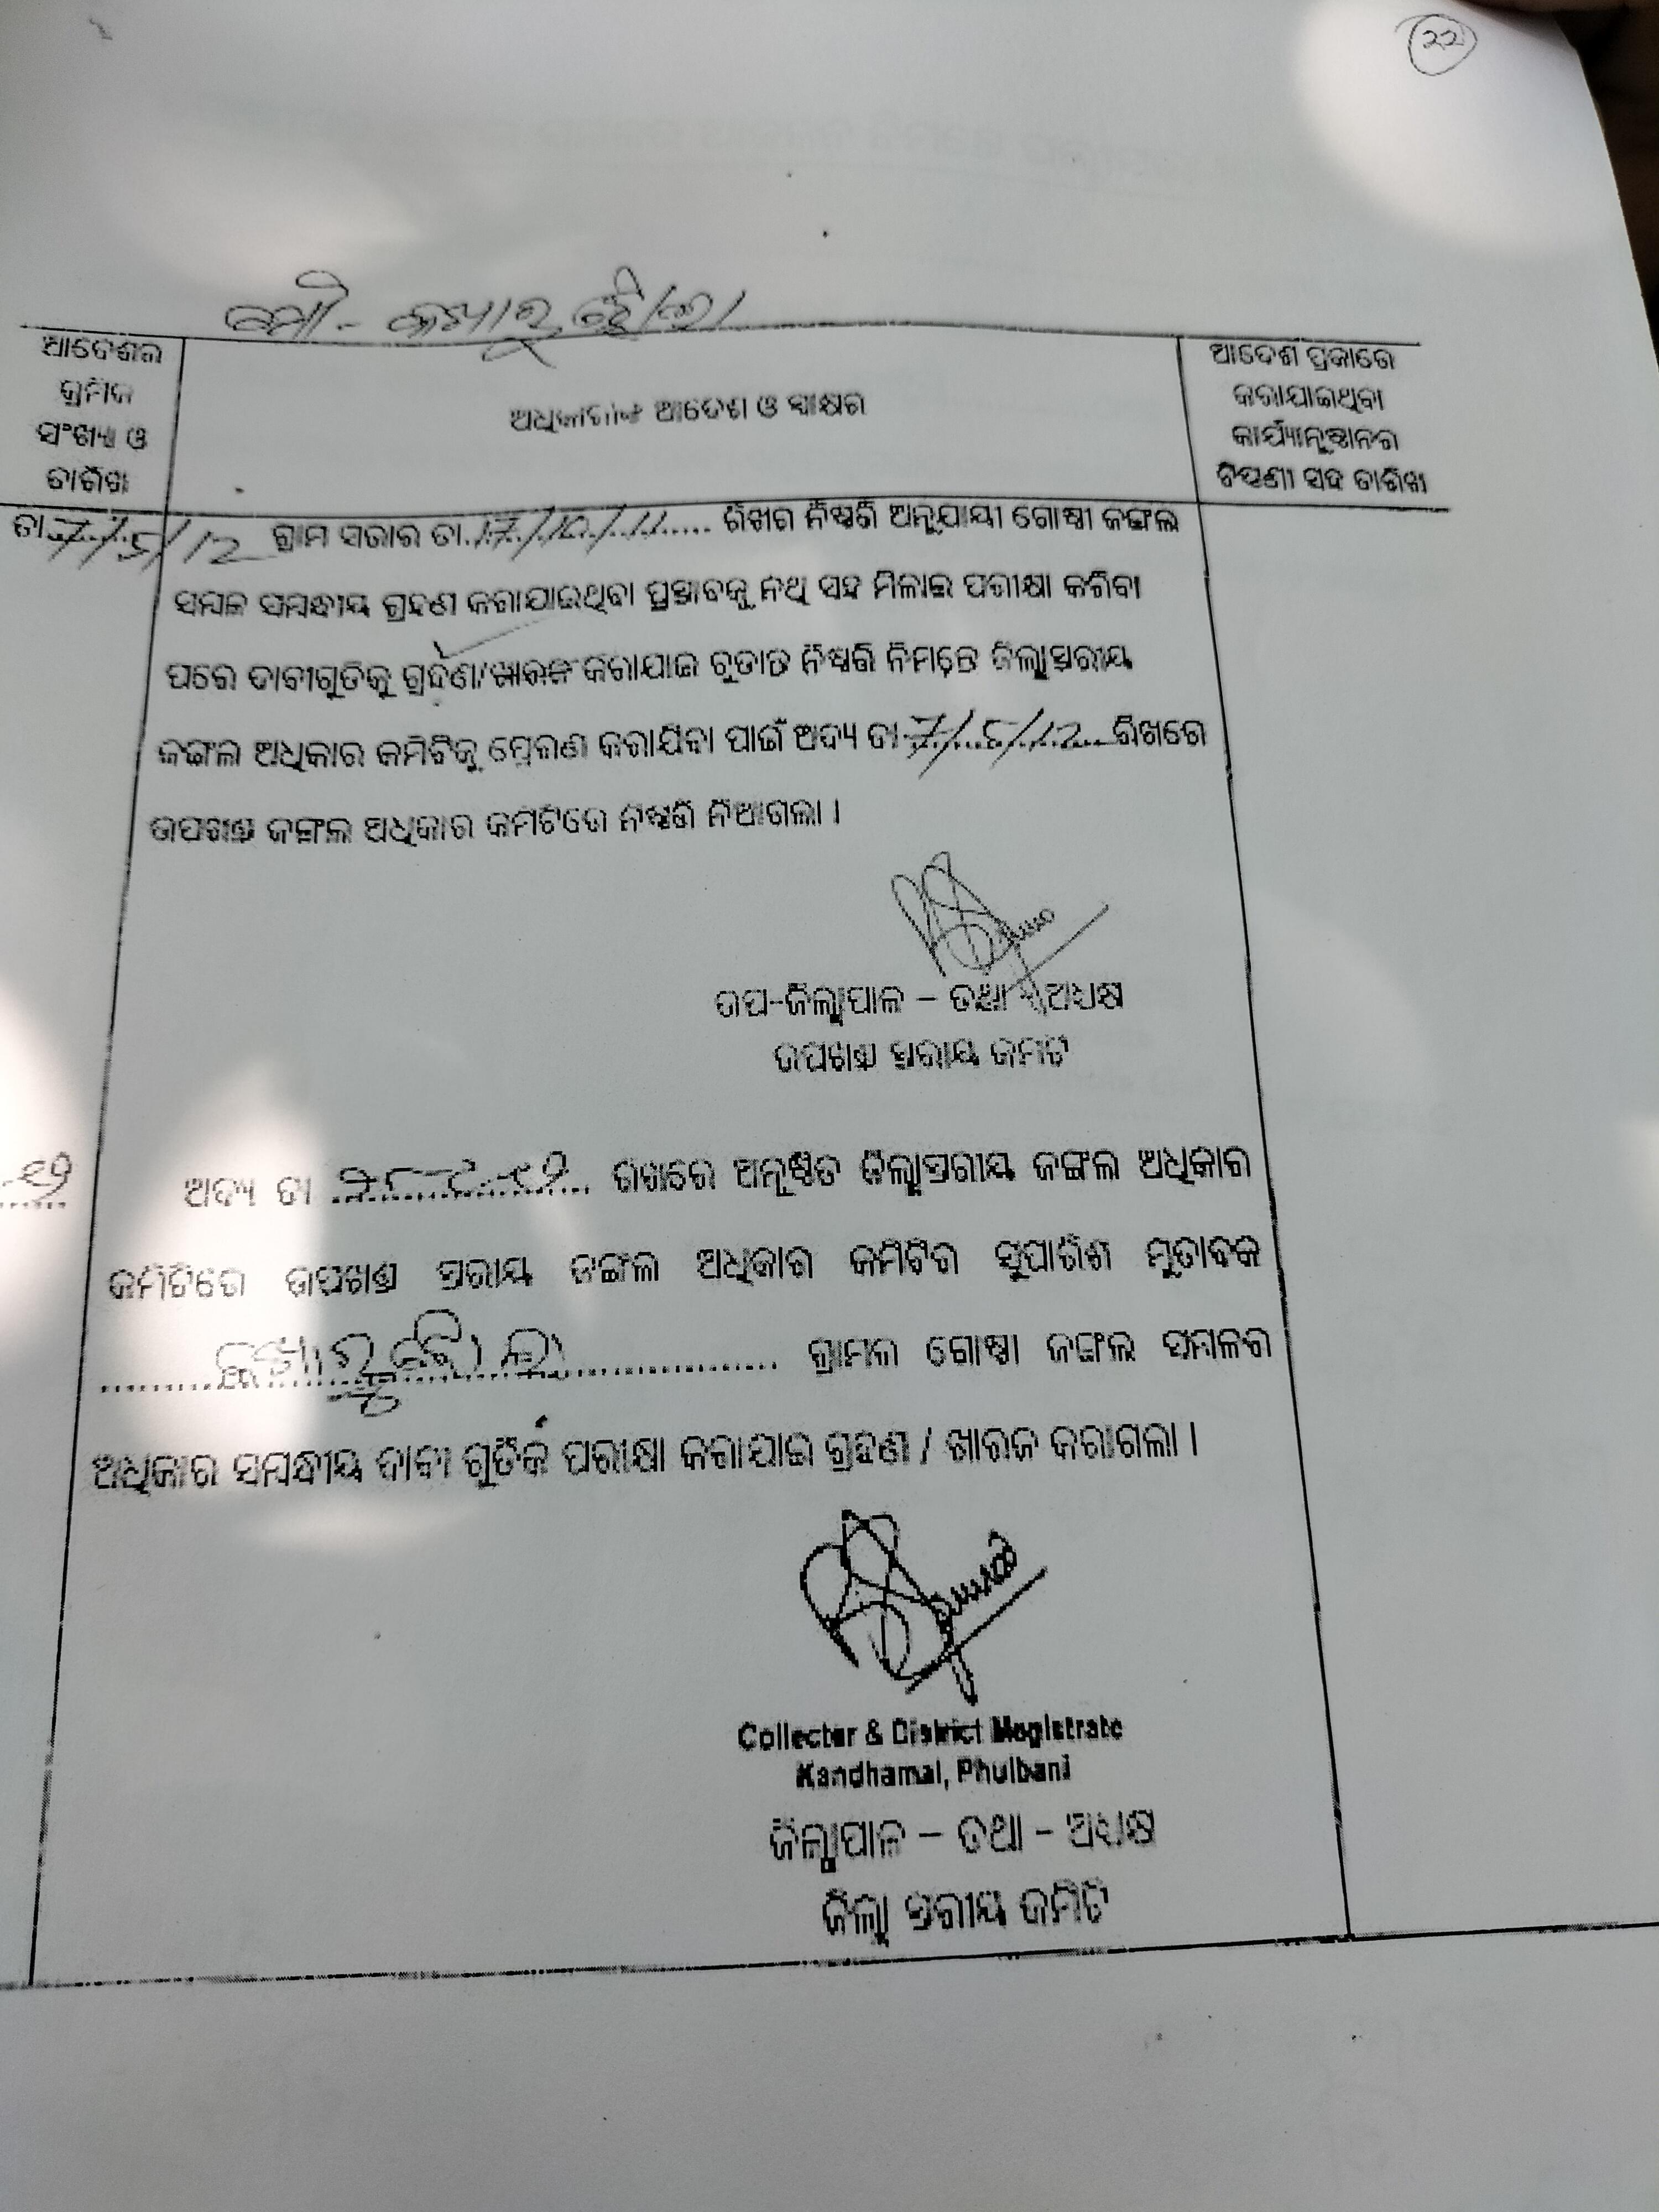 22
ମୌ - କଖାରୁ
ଆଦେଶର
କ୍ରମିକ
ସଂଖ୍ୟା ଓ
ତାରିଖ
ଅଧିକାରୀଙ୍କ ଆଦେଶ ଓ ସ୍ୱାକ୍ଷର
ଆଦେଶ ପ୍ରକାରେ
କରାଯାଇଥିବା
କାର୍ଯ୍ୟାନୁଷ୍ଠାନର
ଟିପ୍ପଣୀ ସହ ତାରିଖ
ତା. 7/5/12
ଗ୍ରାମ ସଭାର ତା. 17/10/11 ରିଖର ନିଷ୍ପତ୍ତି ଅନୁଯାୟୀ ଗୋଷ୍ଠୀ ଜଙ୍ଗଲ
ସମ୍ବଳ ସମ୍ବନ୍ଧୀୟ ଗ୍ରହଣ କରାଯାଇଥିବା ପ୍ରସ୍ତାବକୁ ନଥି ସହ ମିଳାଇ ପରୀକ୍ଷା କରିବା
ପରେ ଦାବୀଗୁଡିକୁ ଗ୍ରହଣ/ଖାରଜ କରାଯାଇ ଚୂଡାନ୍ତ ନିଷ୍ପତ୍ତି ନିମନ୍ତେ ଜିଲ୍ଲାସ୍ତରୀୟ
ଜଙ୍ଗଲ ଅଧିକାର କମିଟିକୁ ପ୍ରେରଣ କରାଯିବା ପାଇଁ ଅଦ୍ୟ ତା 7/5/12 ରିଖରେ
ଉପଖଣ୍ଡ ଜଙ୍ଗଲ ଅଧିକାର କମିଟିରେ ନିଷ୍ପତ୍ତି ନିଆଗଲା ।
ଉପ-ଜିଲ୍ଲାପାଳ – ତଥା – ଅଧ୍ୟକ୍ଷ
ଉପଖଣ୍ଡ ସ୍ତରୀୟ କମିଟି
ଅଦ୍ୟ ତା ରିଖରେ ଅନୁଷ୍ଠିତ ଜିଲ୍ଲାସ୍ତରୀୟ ଜଙ୍ଗଲ ଅଧିକାର
କମିଟିରେ ଉପଖଣ୍ଡ ସ୍ତରୀୟ ଜଙ୍ଗଲ ଅଧିକାର କମିଟିର ସୁପାରିଶ ମୁତାବକ
ଗ୍ରାମର ଗୋଷ୍ଠୀ ଜଙ୍ଗଲ ସମ୍ବଳର
ଅଧିକାର ସମ୍ବନ୍ଧୀୟ ଦାବୀ ଗୁଡିକ ପରୀକ୍ଷା କରାଯାଇ ଗ୍ରହଣ / ଖାରଜ କରାଗଲା ।
Collector & District Magistrate
Kandhamal, Phulbani
ଜିଲ୍ଲାପାଳ – ତଥା – ଅଧ୍ୟକ୍ଷ
ଜିଲ୍ଲା ସ୍ତରୀୟ କମିଟି